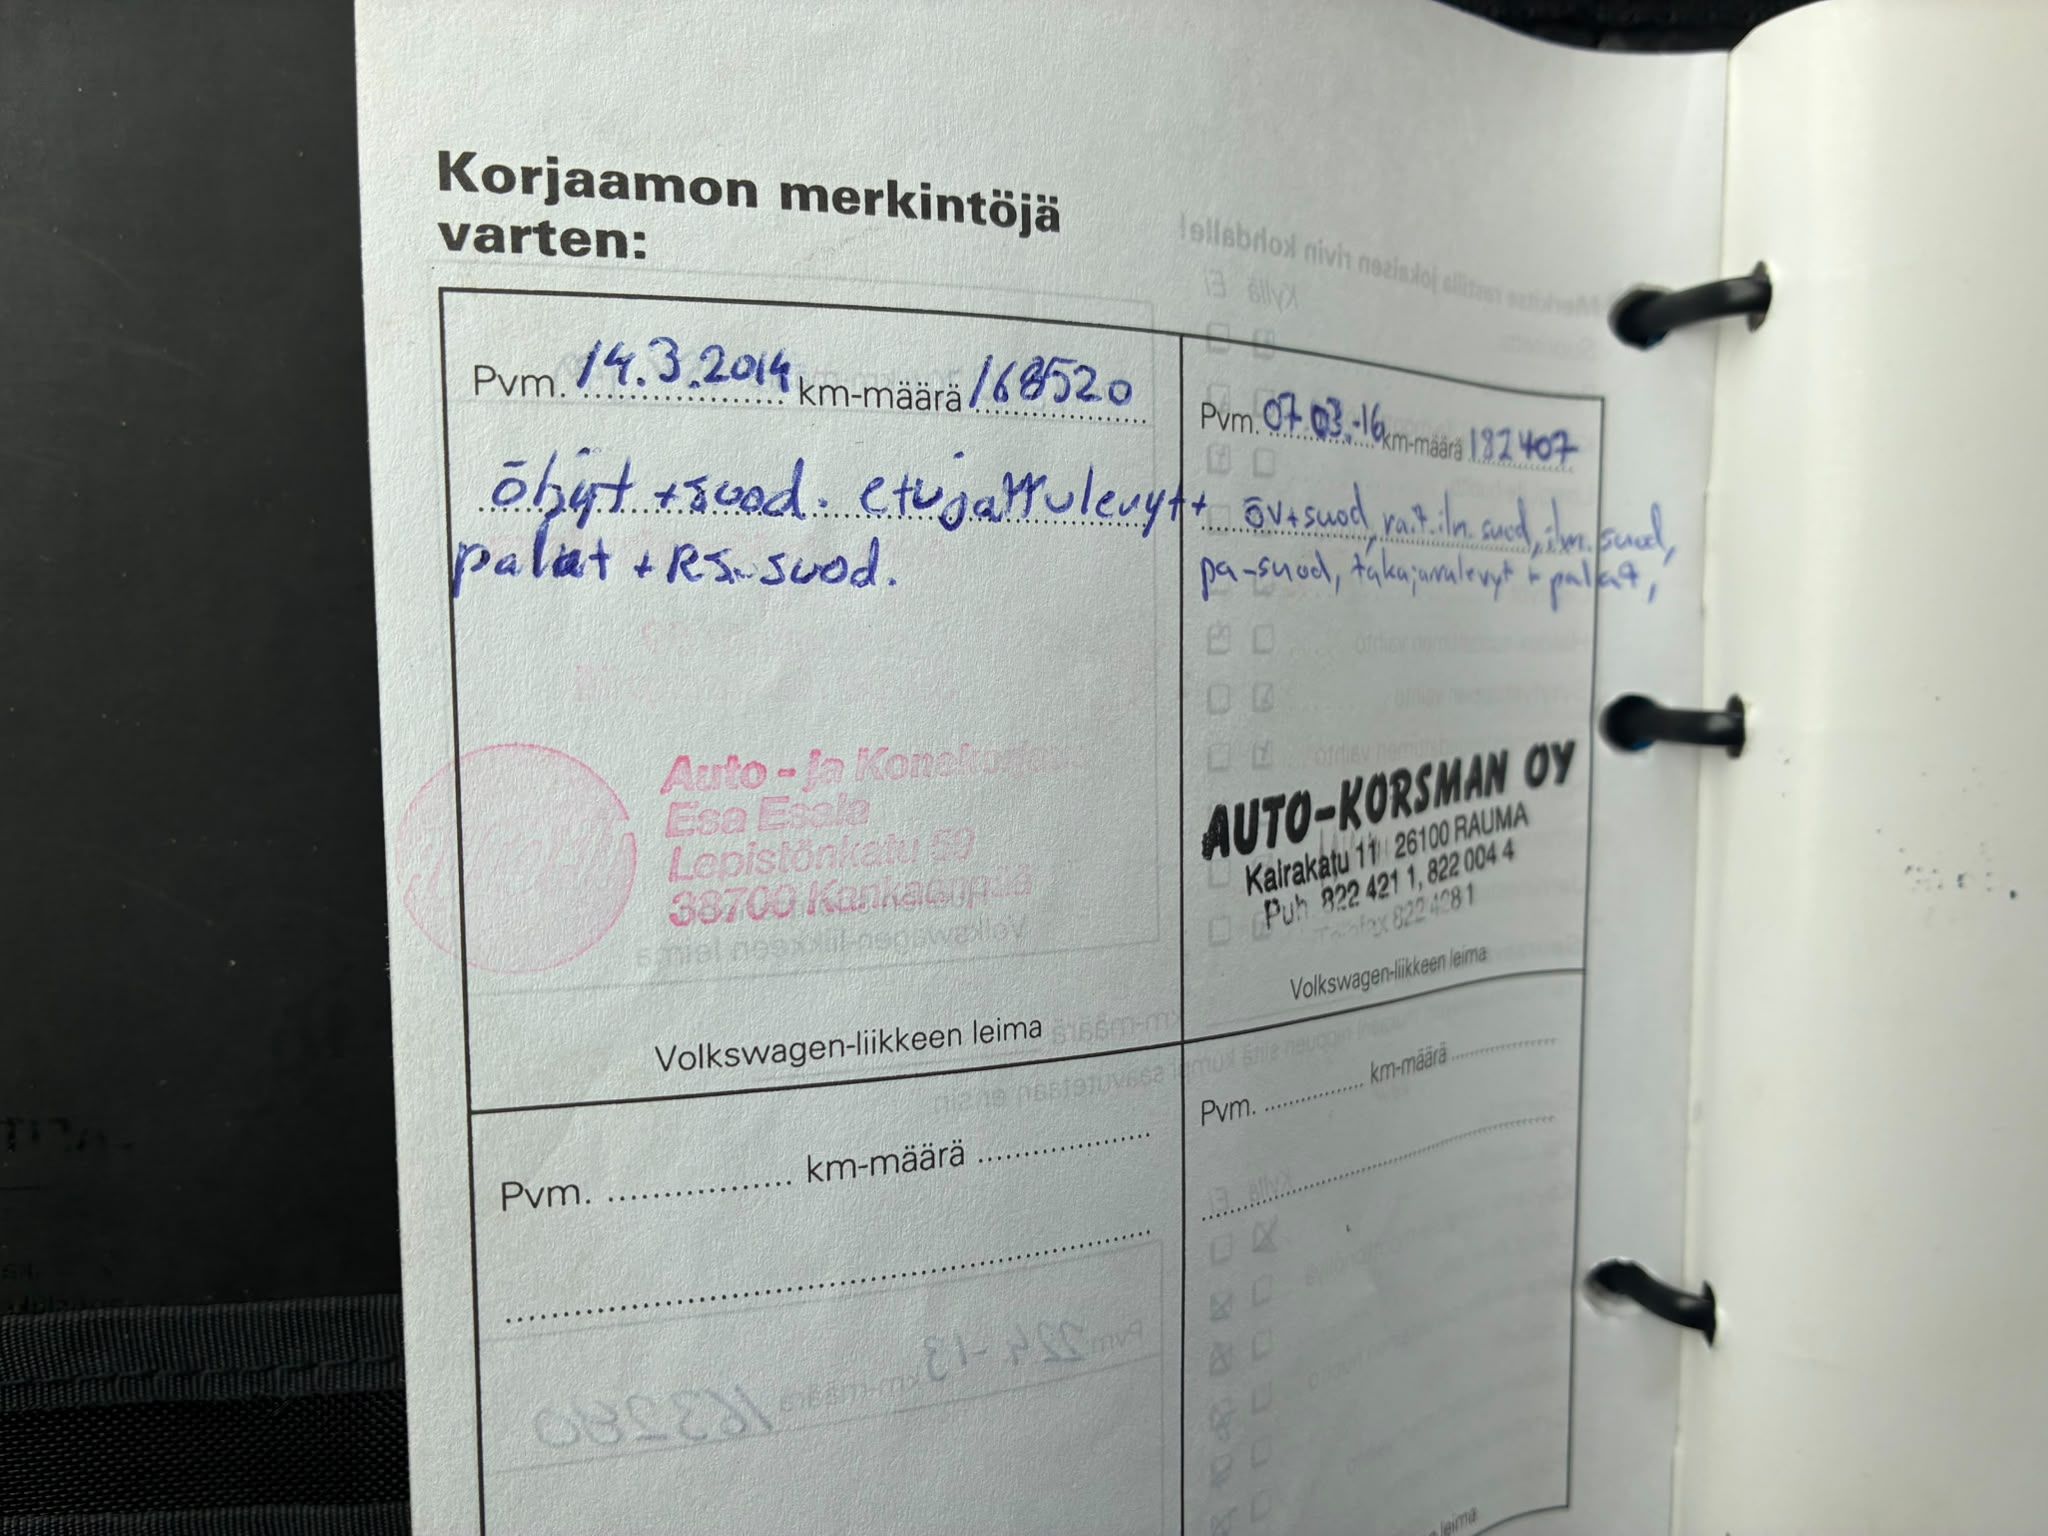 Korjaamon merkintöjä
varten:
Pvm. 14.3.2014 km-määrä 168520
öljyt + suod. etujarrulevyt +
palat + RS. suod.
Auto - ja Konekorjaa
Esa Esala
Lepistönkatu 59
38700 Kankaanpää
Volkswagen-liikkeen leima
Pvm. 07.03.-16 km-määrä 182407
öv+suod, ra.t.iln. suod, ilm. suod,
pa-suod, takajarrulevyt + palat,
AUTO-KORSMAN OY
Kairakatu 11 26100 RAUMA
Puh. 822 421 1, 822 004 4
Telefax 822 4281
Volkswagen-liikkeen leima
Pvm. km-määrä
Pvm. km-määrä
leima